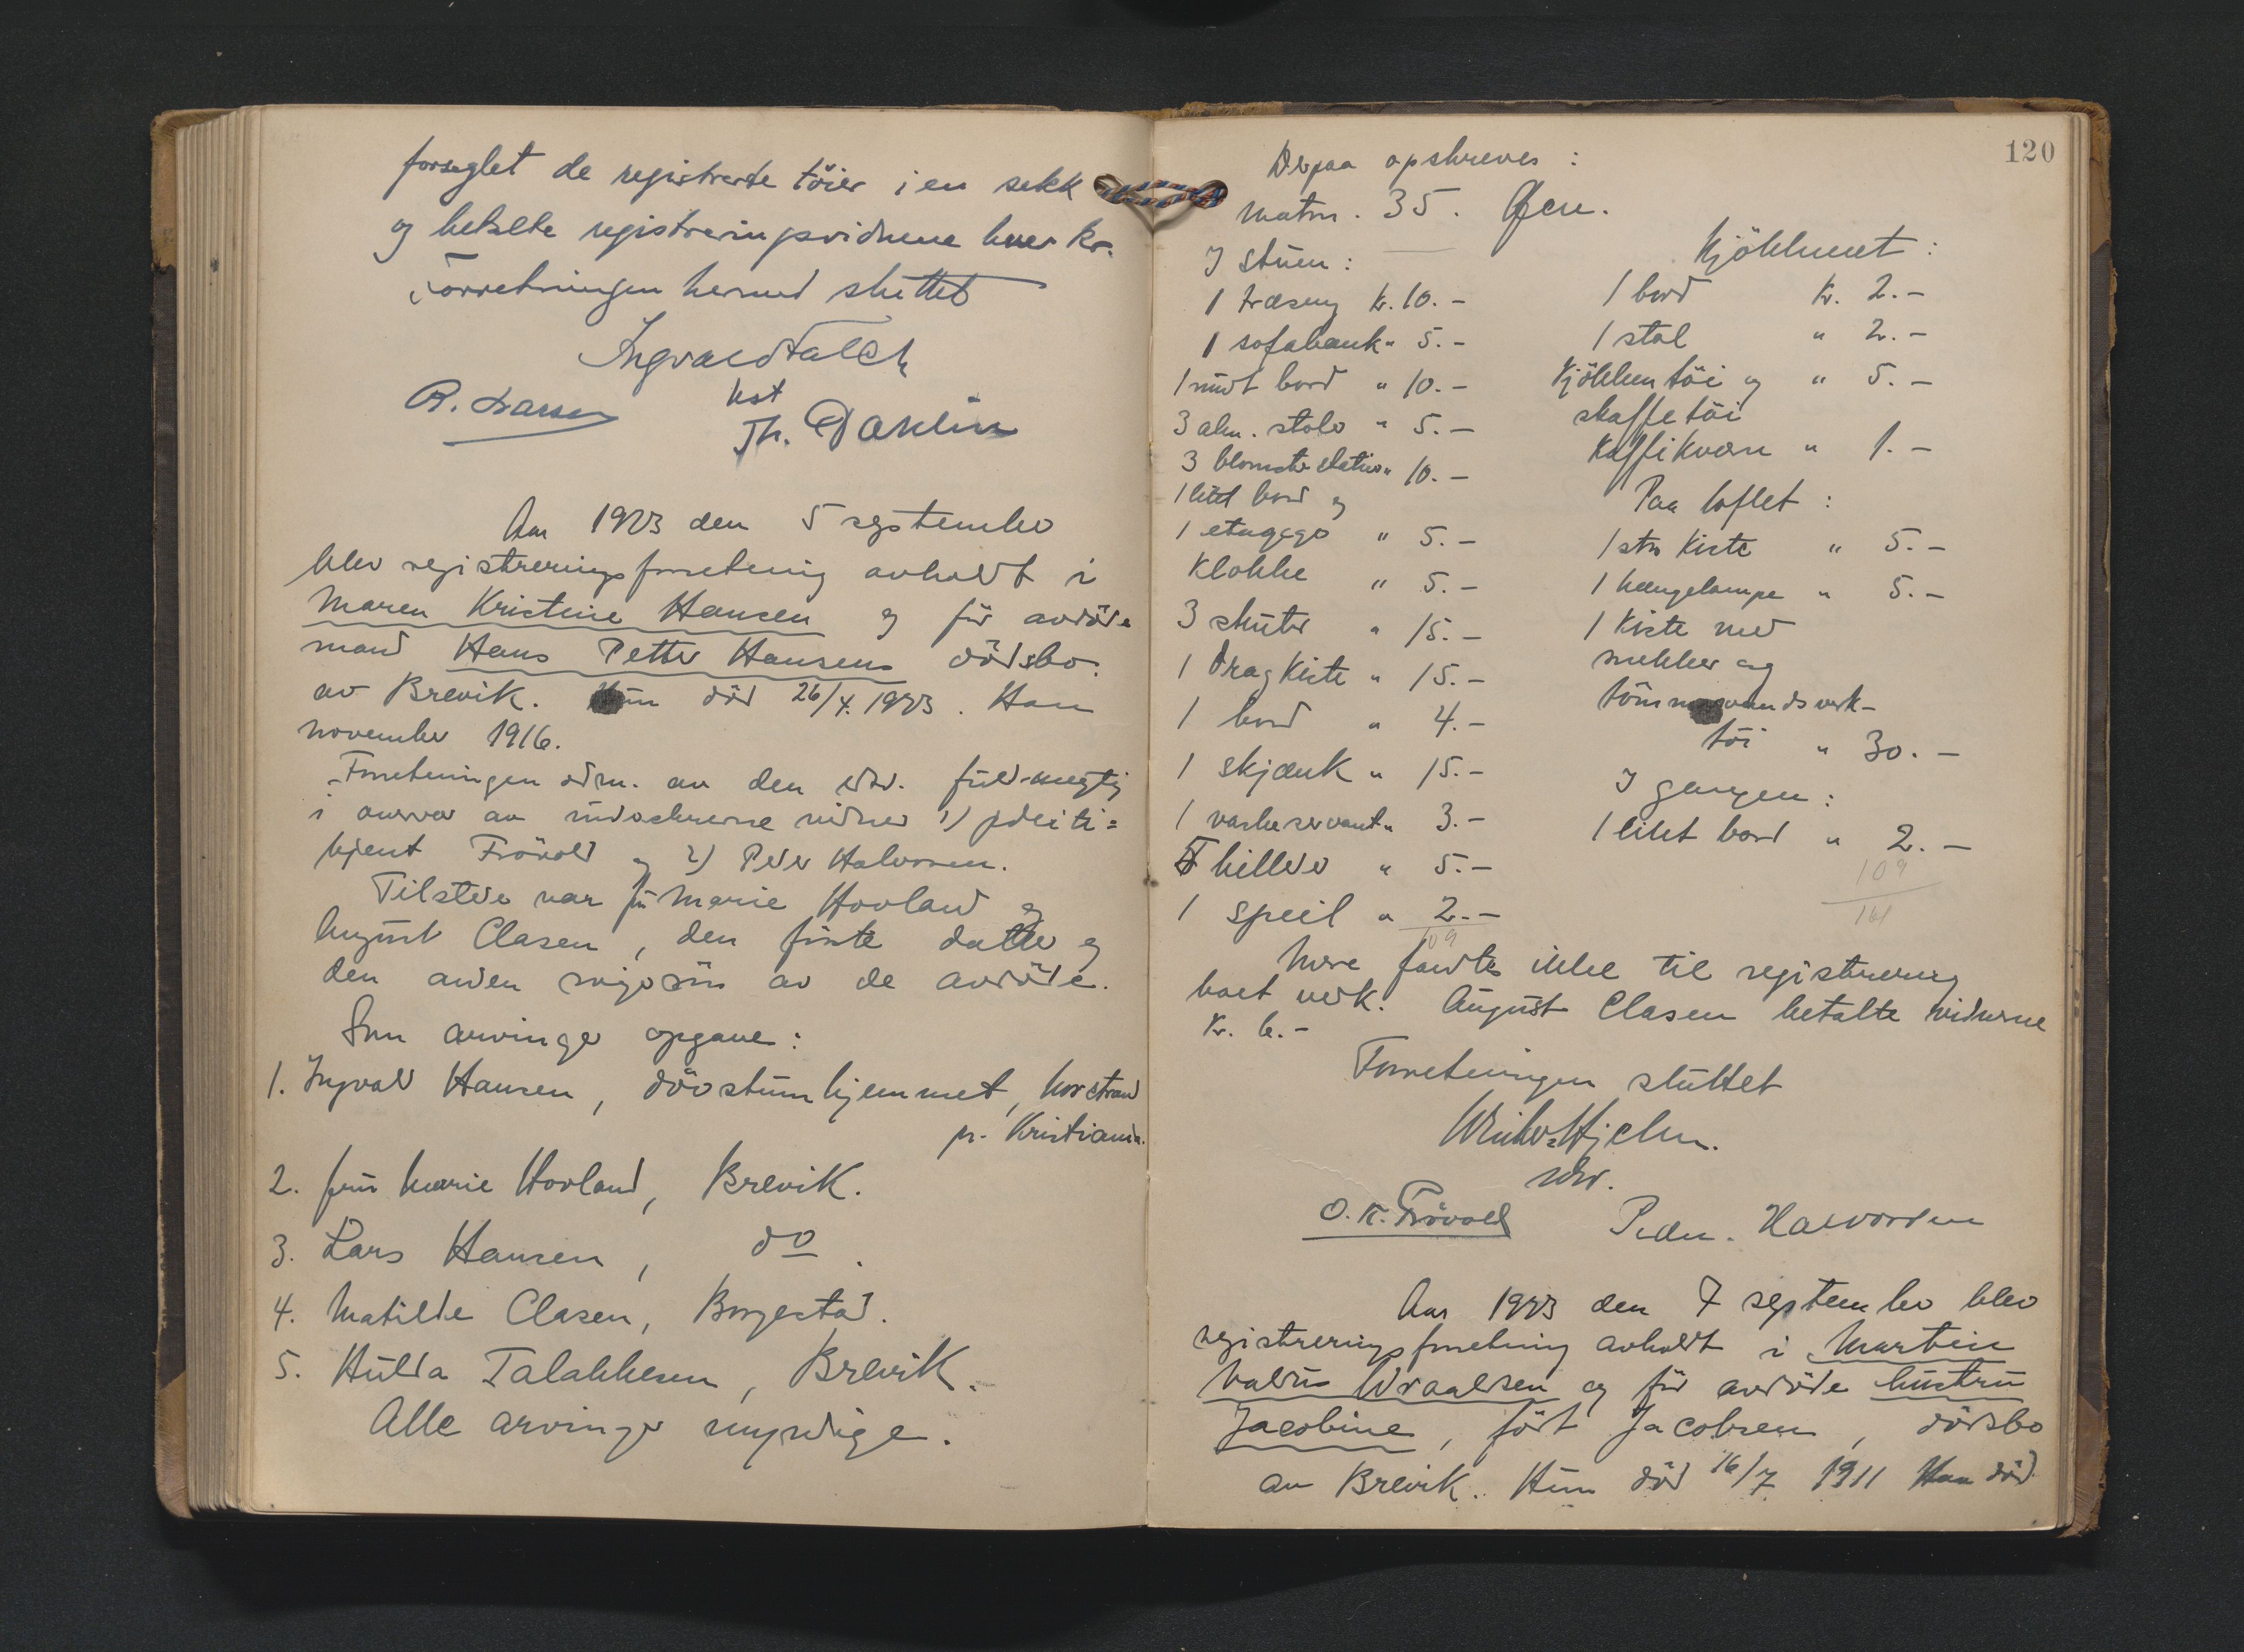 forseglet de registrerte töier i en sekk
og betalte registreringsvidnene hver kr.
Forretningen hermed sluttet
Ingvald Falch
kst
R. Larsen
Th. Dahlin
Aar 1923 den 5 september
blev registreringsforretning avholdt i
Maren Kristine Hansen og för avdöde
mand Hans Petter Hansens dödsbo
av Brevik. Hun död 26/4. 1923. Han
november 1916.
Forretningen adm. av den edsv. fuldmegtig
i overvær av undertegnede vidner 1) politi=
betjent Frövold og 2) Peder Halvorsen.
Tilstede var fru Marie Hovland og
August Clasen, den förste datter og
den anden svigersön av de avdöde.
Som arvinger opgave:
1. Ingvald Hansen, dövstumhjemmet, Nordstrand
pr. Kristiania.
2. fru Marie Hovland, Brevik.
3. Lars Hansen, do.
4. Matilde Clasen, Borgestad.
5. Hulda Talakkesen, Brevik.
Alle arvinger myndige.
120
Derpaa opskreves:
Matrn. 35. Øen.
I stuen:
1 træseng kr. 10.-
1 sofabænk " 5.-
1 rundt bord " 10.-
3 alm. stoler " 5.-
3 blomsterstativer " 10.-
1 litet bord og
1 etagege " 5.-
Klokke " 5.-
3 skuter " 15.-
1 Dragkiste " 15.-
1 bord " 4.-
1 skjænk " 15.-
1 vaskeservant " 3.-
5 billeder " 5.-
1 speil " 2.-
109
Kjökkenet:
1 bord kr. 2.-
1 stol " 2.-
Kjökkentöi og " 5.-
skaffetöi
Kaffikværn " 1.-
Paa loftet:
1 stor Kiste " 5.-
1 hengelampe " 5.-
1 Kiste med
snekker og
tömmermandsverk-
töi " 30.-
I gangen:
1 litet bord " 2.-
109
161
Mere fandtes ikke til registrering
boet vedk. August Clasen betalte vidnerne
Kr. 6.-
Forretningen sluttet
Winter-Hjelm.
edsv.
O. K. Frövold
Peder. Halvorsen
Aar 1923 den 7 september blev
registreringsforretning avholdt i Martin
Valdus Wraaldsen og för avdöde hustru
Jacobine, født Jacobsen, dödsbo
av Brevik. Hun död 16/7 1911 Han död